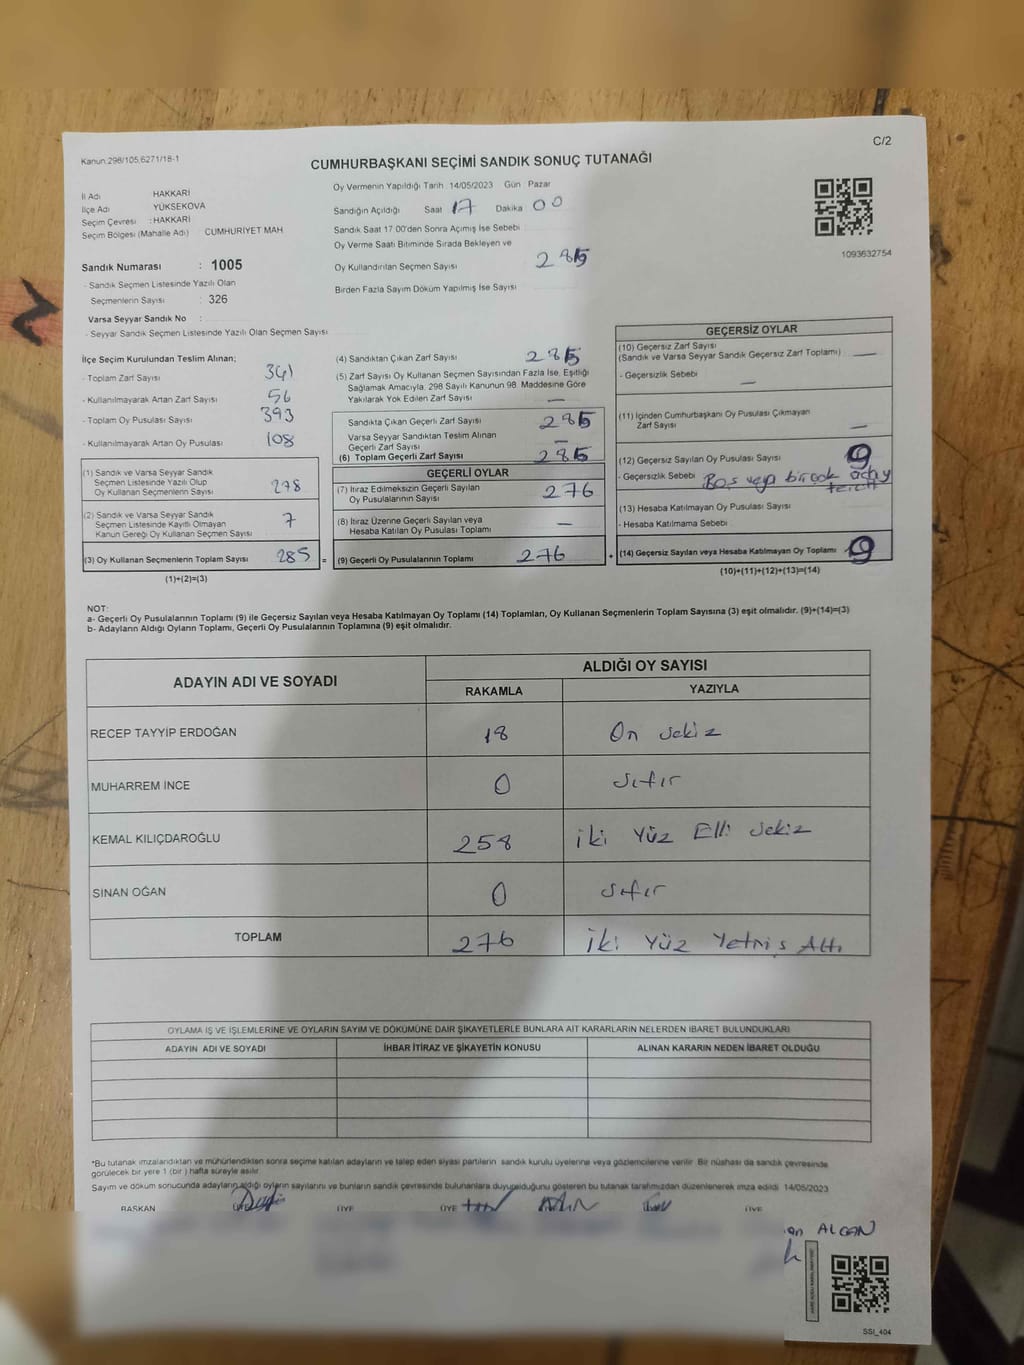 C/2
Kanun:298/105,6271/18-1
CUMHURBAŞKANI SEÇİMİ SANDIK SONUÇ TUTANAĞI
İl Adı HAKKARİ
İlçe Adı YÜKSEKOVA
Seçim Çevresi : HAKKARİ
Seçim Bölgesi (Mahalle Adı) CUMHURİYET MAH
Sandık Numarası : 1005
- Sandık Seçmen Listesinde Yazılı Olan
Seçmenlerin Sayısı : 326
Varsa Seyyar Sandık No :
- Seyyar Sandık Seçmen Listesinde Yazılı Olan Seçmen Sayısı
Oy Vermenin Yapıldığı Tarih 14/05/2023 Gün Pazar
Sandığın Açıldığı Saat 17 Dakika 00
Sandık Saat 17.00'den Sonra Açımış İse Sebebi
Oy Verme Saati Bitiminde Sırada Bekleyen ve
Oy Kullandırılan Seçmen Sayısı 285
Birden Fazla Sayım Döküm Yapılmış İse Sayısı
1093632754
İlçe Seçim Kurulundan Teslim Alınan;
- Toplam Zarf Sayısı 341
- Kullanılmayarak Artan Zarf Sayısı 56
- Toplam Oy Pusulası Sayısı 393
- Kullanılmayarak Artan Oy Pusulası 108
(1) Sandık ve Varsa Seyyar Sandık
Seçmen Listesinde Yazılı Olup
Oy Kullanan Seçmenlerin Sayısı 278
(2) Sandık ve Varsa Seyyar Sandık
Seçmen Listesinde Kayıtlı Olmayan
Kanun Gereği Oy Kullanan Seçmen Sayısı 7
(3) Oy Kullanan Seçmenlerin Toplam Sayısı 285 =
(1)+(2)=(3)
(4) Sandıktan Çıkan Zarf Sayısı 285
(5) Zarf Sayısı Oy Kullanan Seçmen Sayısından Fazla İse, Eşitliği
Sağlamak Amacıyla, 298 Sayılı Kanunun 98. Maddesine Göre
Yakılarak Yok Edilen Zarf Sayısı —
Sandıkta Çıkan Geçerli Zarf Sayısı 285
Varsa Seyyar Sandıktan Teslim Alınan
Geçerli Zarf Sayısı —
(6) Toplam Geçerli Zarf Sayısı 285
GEÇERLİ OYLAR
(7) İtiraz Edilmeksizin Geçerli Sayılan
Oy Pusulalarının Sayısı 276
(8) İtiraz Üzerine Geçerli Sayılan veya
Hesaba Katılan Oy Pusulası Toplamı —
(9) Geçerli Oy Pusulalarının Toplamı 276 +
GEÇERSİZ OYLAR
(10) Geçersiz Zarf Sayısı
(Sandık ve Varsa Seyyar Sandık Geçersiz Zarf Toplamı) —
- Geçersizlik Sebebi —
(11) İçinden Cumhurbaşkanı Oy Pusulası Çıkmayan
Zarf Sayısı —
(12) Geçersiz Sayılan Oy Pusulası Sayısı 9
- Geçersizlik Sebebi Boş veya birçok
(13) Hesaba Katılmayan Oy Pusulası Sayısı
- Hesaba Katılmama Sebebi
(14) Geçersiz Sayılan veya Hesaba Katılmayan Oy Toplamı 9
(10)+(11)+(12)+(13)=(14)
NOT:
a- Geçerli Oy Pusulalarının Toplamı (9) ile Geçersiz Sayılan veya Hesaba Katılmayan Oy Toplamı (14) Toplamları, Oy Kullanan Seçmenlerin Toplam Sayısına (3) eşit olmalıdır. (9)+(14)=(3)
b- Adayların Aldığı Oyların Toplamı, Geçerli Oy Pusulalarının Toplamına (9) eşit olmalıdır.
ADAYIN ADI VE SOYADI ALDIĞI OY SAYISI
RAKAMLA YAZIYLA
RECEP TAYYİP ERDOĞAN 18 On sekiz
MUHARREM İNCE 0 sıfır
KEMAL KILIÇDAROĞLU 258 iki Yüz Elli sekiz
SİNAN OĞAN 0 sıfır
TOPLAM 276 iki Yüz Yetmiş Altı
OYLAMA İŞ VE İŞLEMLERİNE VE OYLARIN SAYIM VE DÖKÜMÜNE DAİR ŞİKAYETLERLE BUNLARA AİT KARARLARIN NELERDEN İBARET BULUNDUKLARI
ADAYIN ADI VE SOYADI İHBAR İTİRAZ VE ŞİKAYETİN KONUSU ALINAN KARARIN NEDEN İBARET OLDUĞU
*Bu tutanak imzalandıktan ve mühürlendikten sonra seçime katılan adayların ve talep eden siyasi partilerin sandık kurulu üyelerine veya gözlemcilerine verilir. Bir nüshası da sandık çevresinde
görülecek bir yere 1 (bir) hafta süreyle asılır.
Sayım ve döküm sonucunda adayların aldığı oyların sayılarını ve bunların sandık çevresinde bulunanlara duyurulduğunu gösteren bu tutanak tarafımızdan düzenlenerek imza edildi 14/05/2023
BAŞKAN ÜYE ÜYE ÜYE
ALCAN
SSI_404